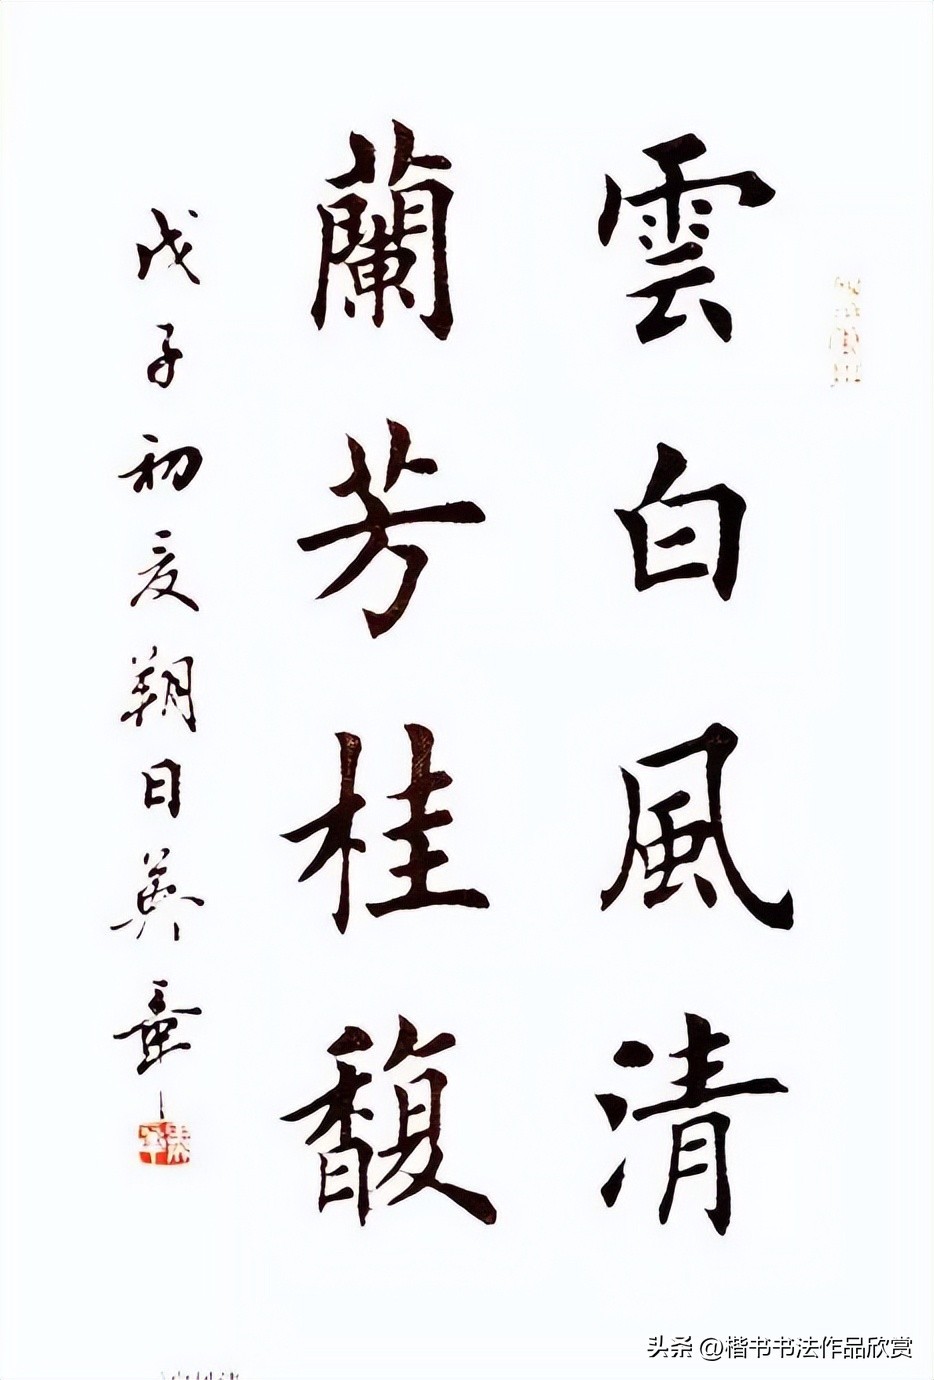 雲白風清
蘭芳桂馥
戊子初夏朔日英章
头条 @楷书书法作品欣赏